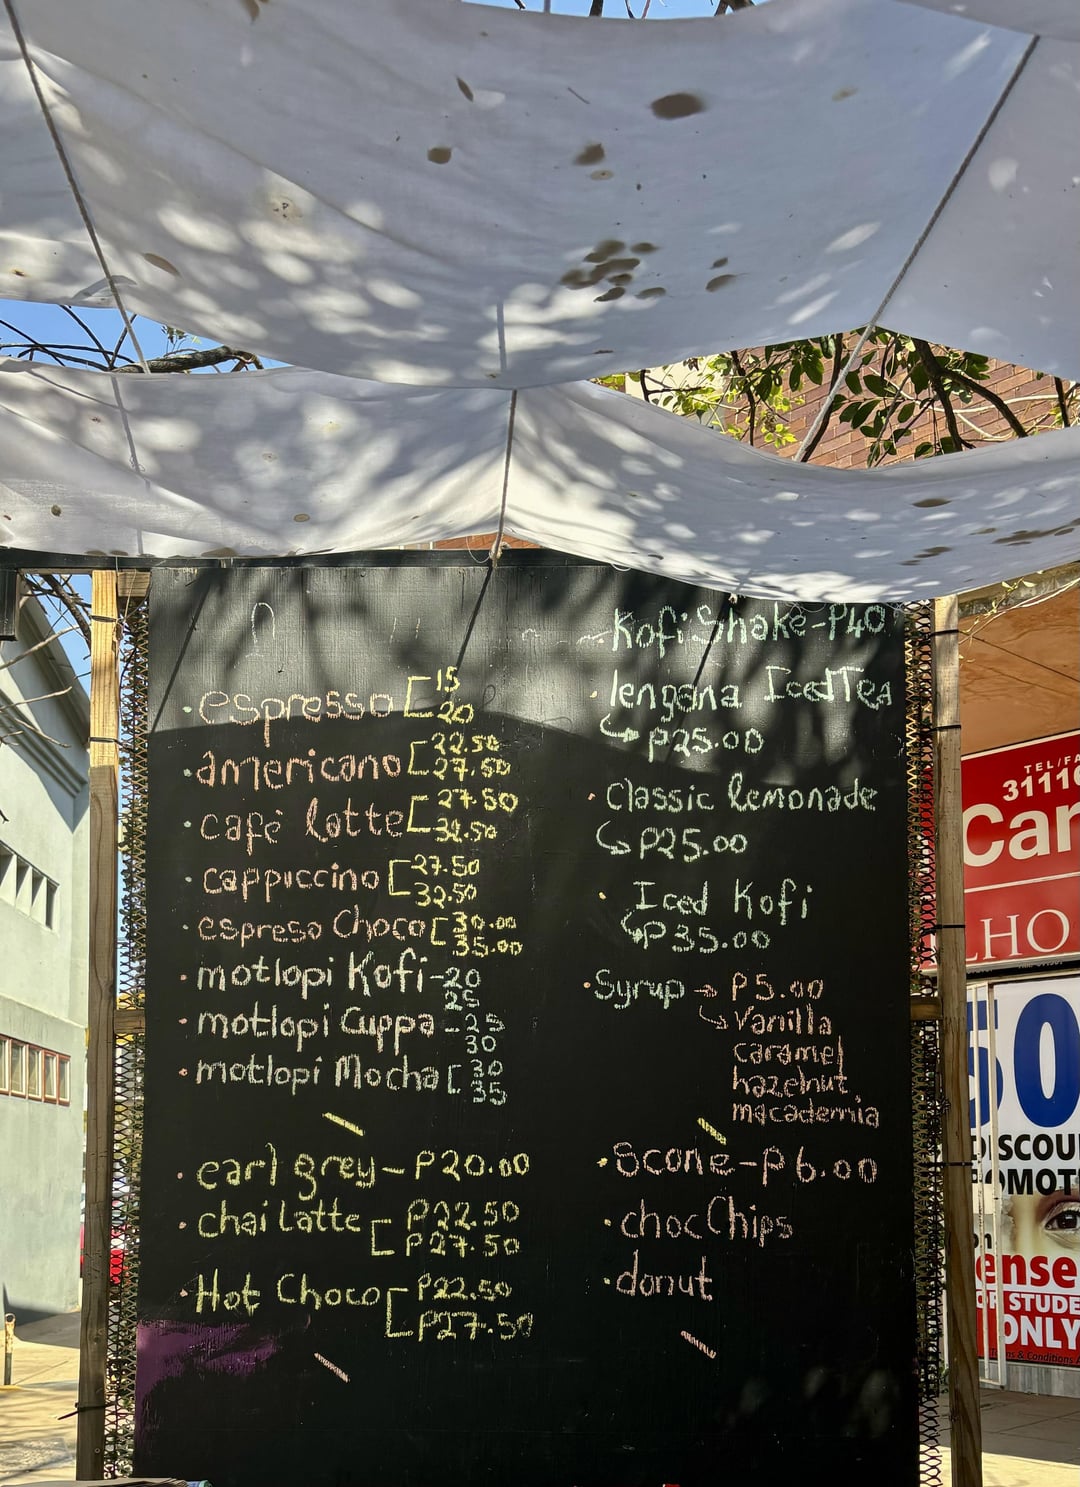 espresso 15
20
americano 22.50
27.50
café latte 27.50
32.50
cappuccino 27.50
32.50
espreso Choco 30.00
35.00
motlopi Kofi-20
25
motlopi Cuppa -25
30
motlopi Mocha 30
35
earl grey-P20.00
chai Latte P22.50
P27.50
Hot Choco P22.50
P27.50
Kofi Shake-P40
lengana Iced Tea
P25.00
Classic lemonade
P25.00
Iced Kofi
P35.00
Syrup P5.00
Vanilla
caramel
hazelnut
macadernia
Scone-P6.00
choc Chips
donut
TEL/FA
31110
Car
LHO
50
DISCOU
OMOT
on
ense
OR STUDE
ONLY